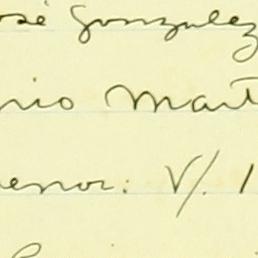 osé Gonzalez
nio Mart
enor: V/. 1